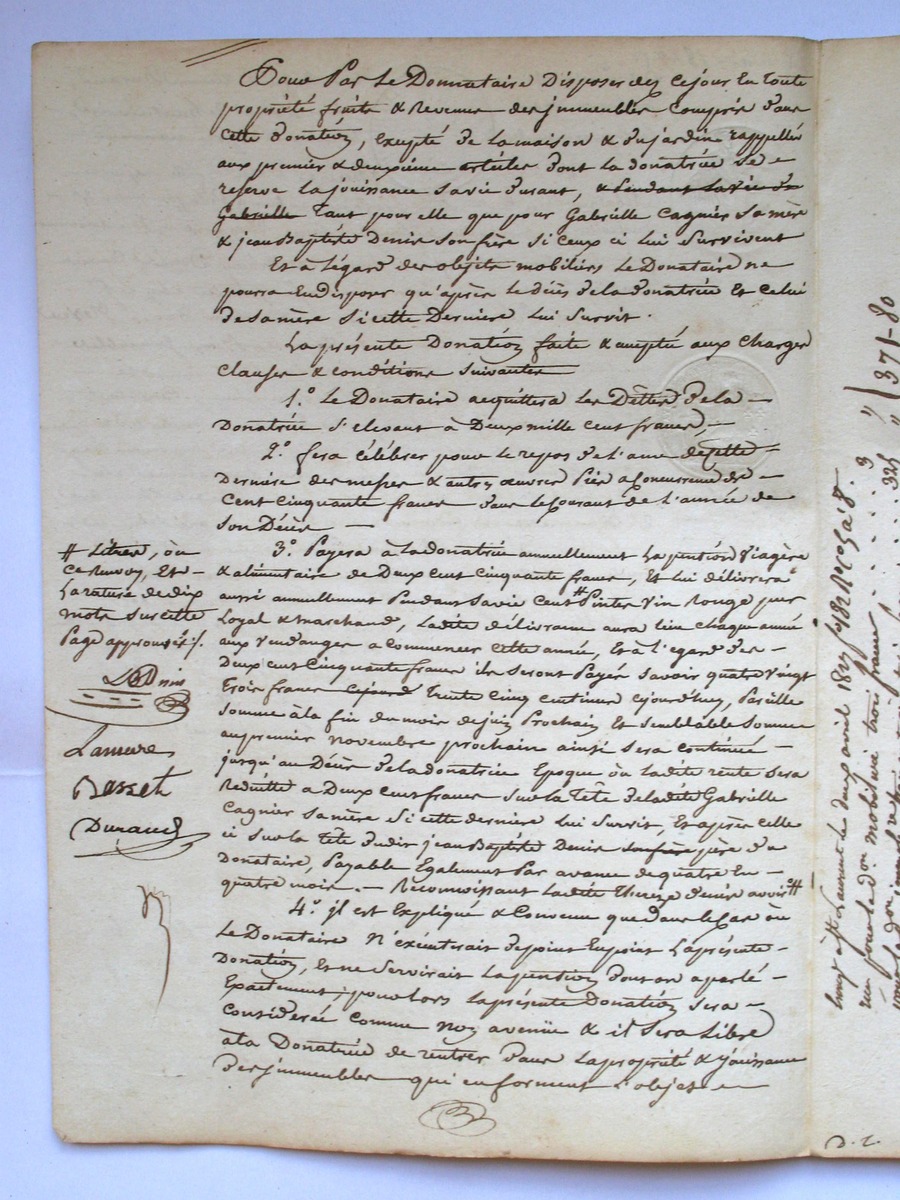 Pour Par Le Donnataire Disposer dez cejour En toute
propriété fruits & Revenus des jmmeubles Compris dans
cette donation, Exepté de la maison & du jardin rappellés
aux premier & deuxième articles dont La donatrice se
reserve La jouissance sa vie durant, & pendant la vie de
Gabrielle tant pour elle que pour Gabrielle Cagnier sa mère
& jean Baptiste Denis son frère si ceux ci Lui Survivent
Et à L'égard des objets mobiliers Le Donataire ne
pourra En disposer qu'après Le décès de la donatrice Et celui
de sa mère si cette Dernière Lui Survit.
La présente Donation faite & acceptée aux charges
Clauses & conditions suivantes
1.º Le Donataire acquittera Les Dettes de la
Donatrice S'elevant à Deux mille cent francs,
2.º fera célébrer pour le repos de l'ame de cette
Dernière des messes & autres œuvres pies a Concurrence de
Cent Cinquante francs dans le Courant de l'année de
Son Décès
3.º Payera à La donatrice annuellement La pention viagère
& alimentaire de Deux cent cinquante francs, Et Lui délivrera
aussi annuellement Pendant sa vie Cent # Pintes Vin Rouge pur
Loyal & marchand, Ladite délivrance aura Lieu chaque année
aux Vendanges a commencer cette année, Et à l'egard des
Deux cent Cinquante francs ils seront Payés savoir quatre vingt
trois francs trente cinq centimes cejourdhuy, Pareille
somme à la fin du mois de juin Prochain Et semblable Somme
au premier novembre prochain ainsi sera continué
jusqu'au Décès de la donatrice Epoque où Ladite rente sera
Réduitte a Deux cent francs Sur La Tête de ladite Gabrielle
Cagnier sa mère Si cette dernière Lui Survit, Et après celle
ci Sur la Tête dudit jean Baptiste Denis son frère père du
Donataire, Payable Egalement Par avance de quatre En
quatre mois. Reconnoissant Ladite denis avoir #
4.º jl est Expliqué & Convenu que dans le Cas où
Le Donataire N'éxécuterait de point En point La présente
Donation, Et ne Servirait La pention dont on a parlé
Exactement, pour lors La présente Donation sera
Considerée comme non avenüe & il sera Libre
à La Donatrice de rentrer dans La propriété & jouissance
des jmmeubles qui en forment L'objet
# Litres, où
ce Renvoy, Et
La rature de dix
mots sur cette
Page approuvés /.
Denis
Lamure
Basset
Durand
371-80
325
3
D. L.